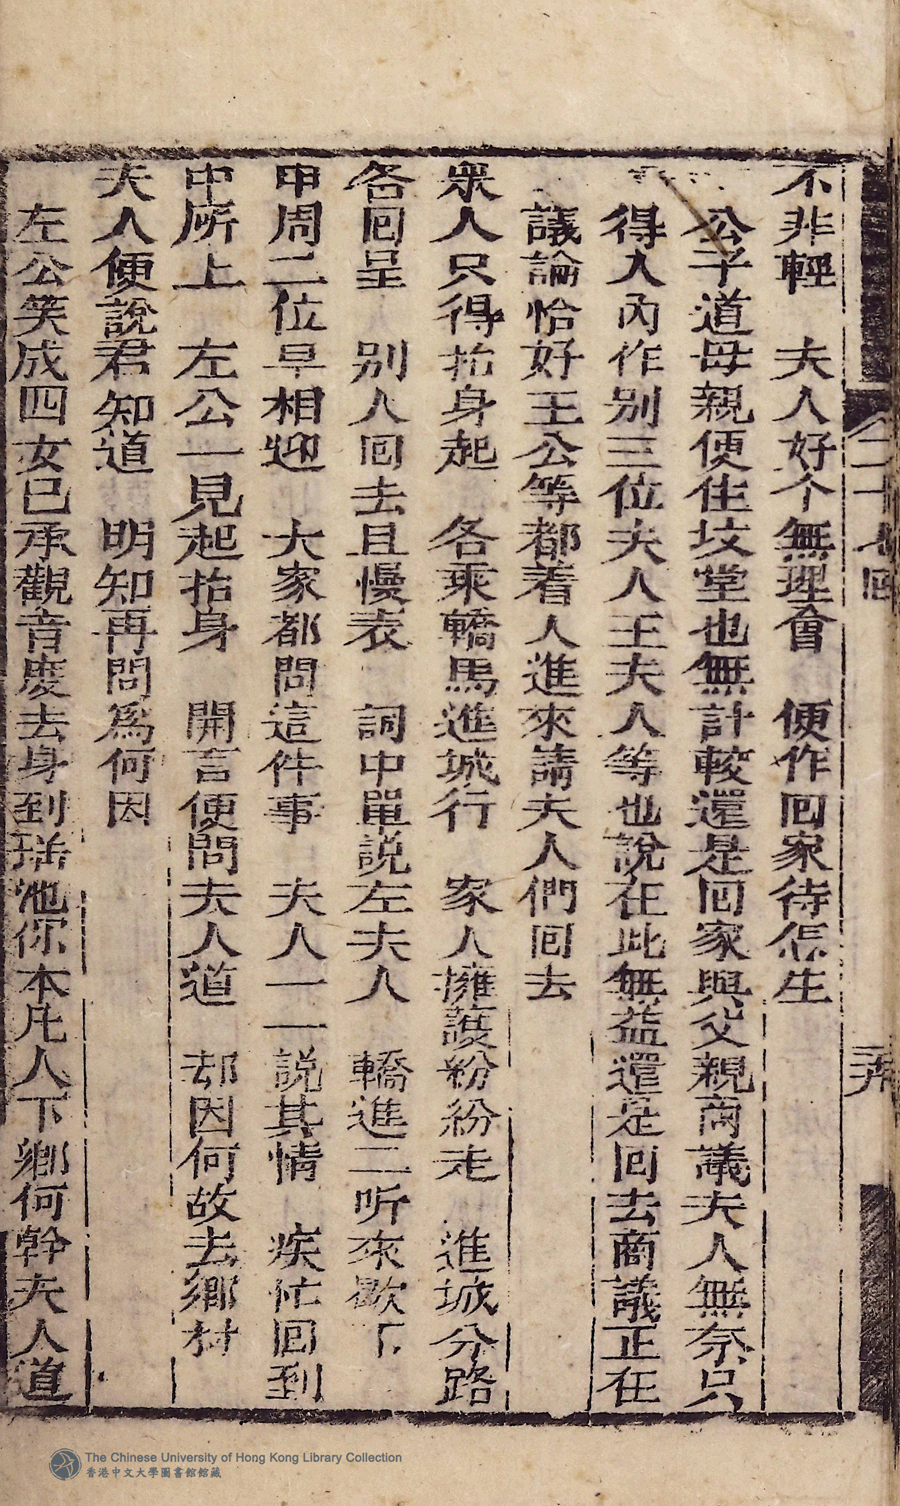 二十七回
二卅
不非輕　夫人好个無理會　便作回家待怎生
公子道母親便住坟堂也無計較還是回家與父親商議夫人無奈只
得入內作别三位夫人王夫人等也說在此無益還是回去商議正在
議論恰好王公等都着人進來請夫人們回去
衆人只得抬身起　各乘轎馬進城行　家人擁護紛紛走　進城分路
各回呈　别人回去且慢表　詞中單説左夫人　轎進二听來歇下
申周二位早相迎　大家都問這件事　夫人一一說其情　疾忙回到
中所上　左公一見起抬身　開言便問夫人道　却因何故去鄉村
夫人便說君知道　明知再問爲何因
左公笑成四女已承觀音度去身到瑶池你本凡人下鄉何幹夫人道
The Chinese University of Hong Kong Library Collection
香港中文大學圖書館館藏